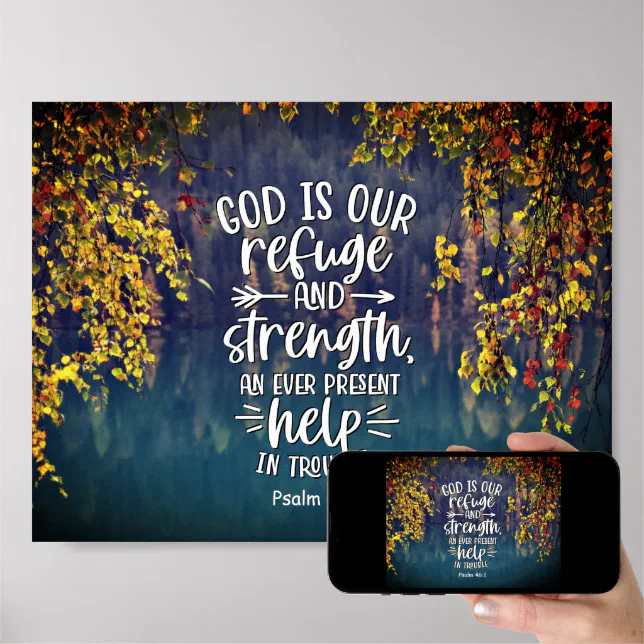 GOD IS OUR
refuge
AND
strength,
AN EVER PRESENT
help
IN TROU
Psalm
GOD IS OUR
refuge
AND
strength,
AN EVER PRESENT
help
IN TROUBLE
Psalm 46:1